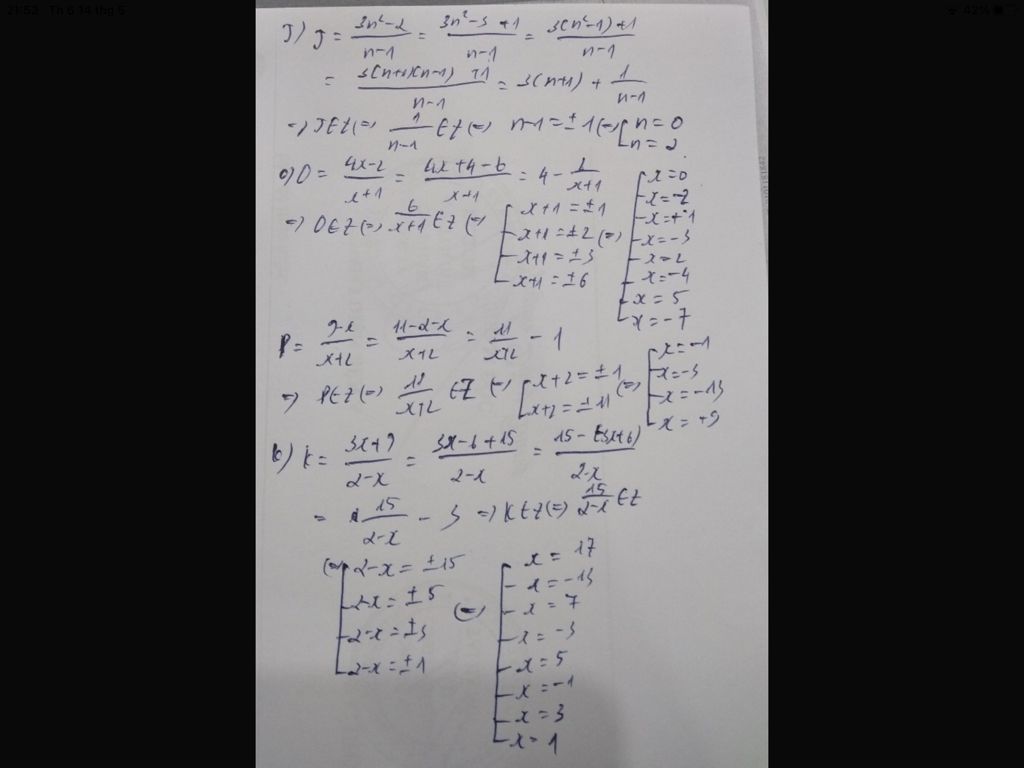 21:52 Th 6 14 thg 5
42%
J) J = \frac{3n²-2}{n-1} = \frac{3n²-3+1}{n-1} = \frac{3(n²-1)+1}{n-1}
= \frac{3(n+1)(n-1)+1}{n-1} = 3(n+1) + \frac{1}{n-1}
=> J∈Z (=) \frac{1}{n-1} ∈ Z (=) n-1 = ±1 (=) [ n = 0
n = 2
O = \frac{4x-2}{x+1} = \frac{4x+4-6}{x+1} = 4 - \frac{}{x+1}
=> O∈Z (=) \frac{6}{x+1} ∈ Z (=) [ x+1 = ±1
x+1 = ±2 (=)
x+1 = ±3
x+1 = ±6
[ x = 0
x = -2
x = +1
x = -3
x = 2
x = -4
x = 5
x = -7
P = \frac{9-x}{x+2} = \frac{11-2-x}{x+2} = \frac{11}{x+2} - 1
=> P∈Z (=) \frac{}{x+2} ∈ Z (=) [ x+2 = ±1
x+2 = ±11 (=)
[ x = -1
x = -3
x = -13
x = +9
K = \frac{3x+9}{2-x} = \frac{3x-6+15}{2-x} = \frac{15-(-3x+6)}{2-x}
= \frac{15}{2-x} - 3 => K∈Z (=) \frac{15}{2-x} ∈ Z
(=) [ 2-x = ±15
2-x = ±5
2-x = ±3
2-x = ±1
(=) [ x = 17
x = -13
x = 7
x = -3
x = 5
x = -1
x = 3
x = 1